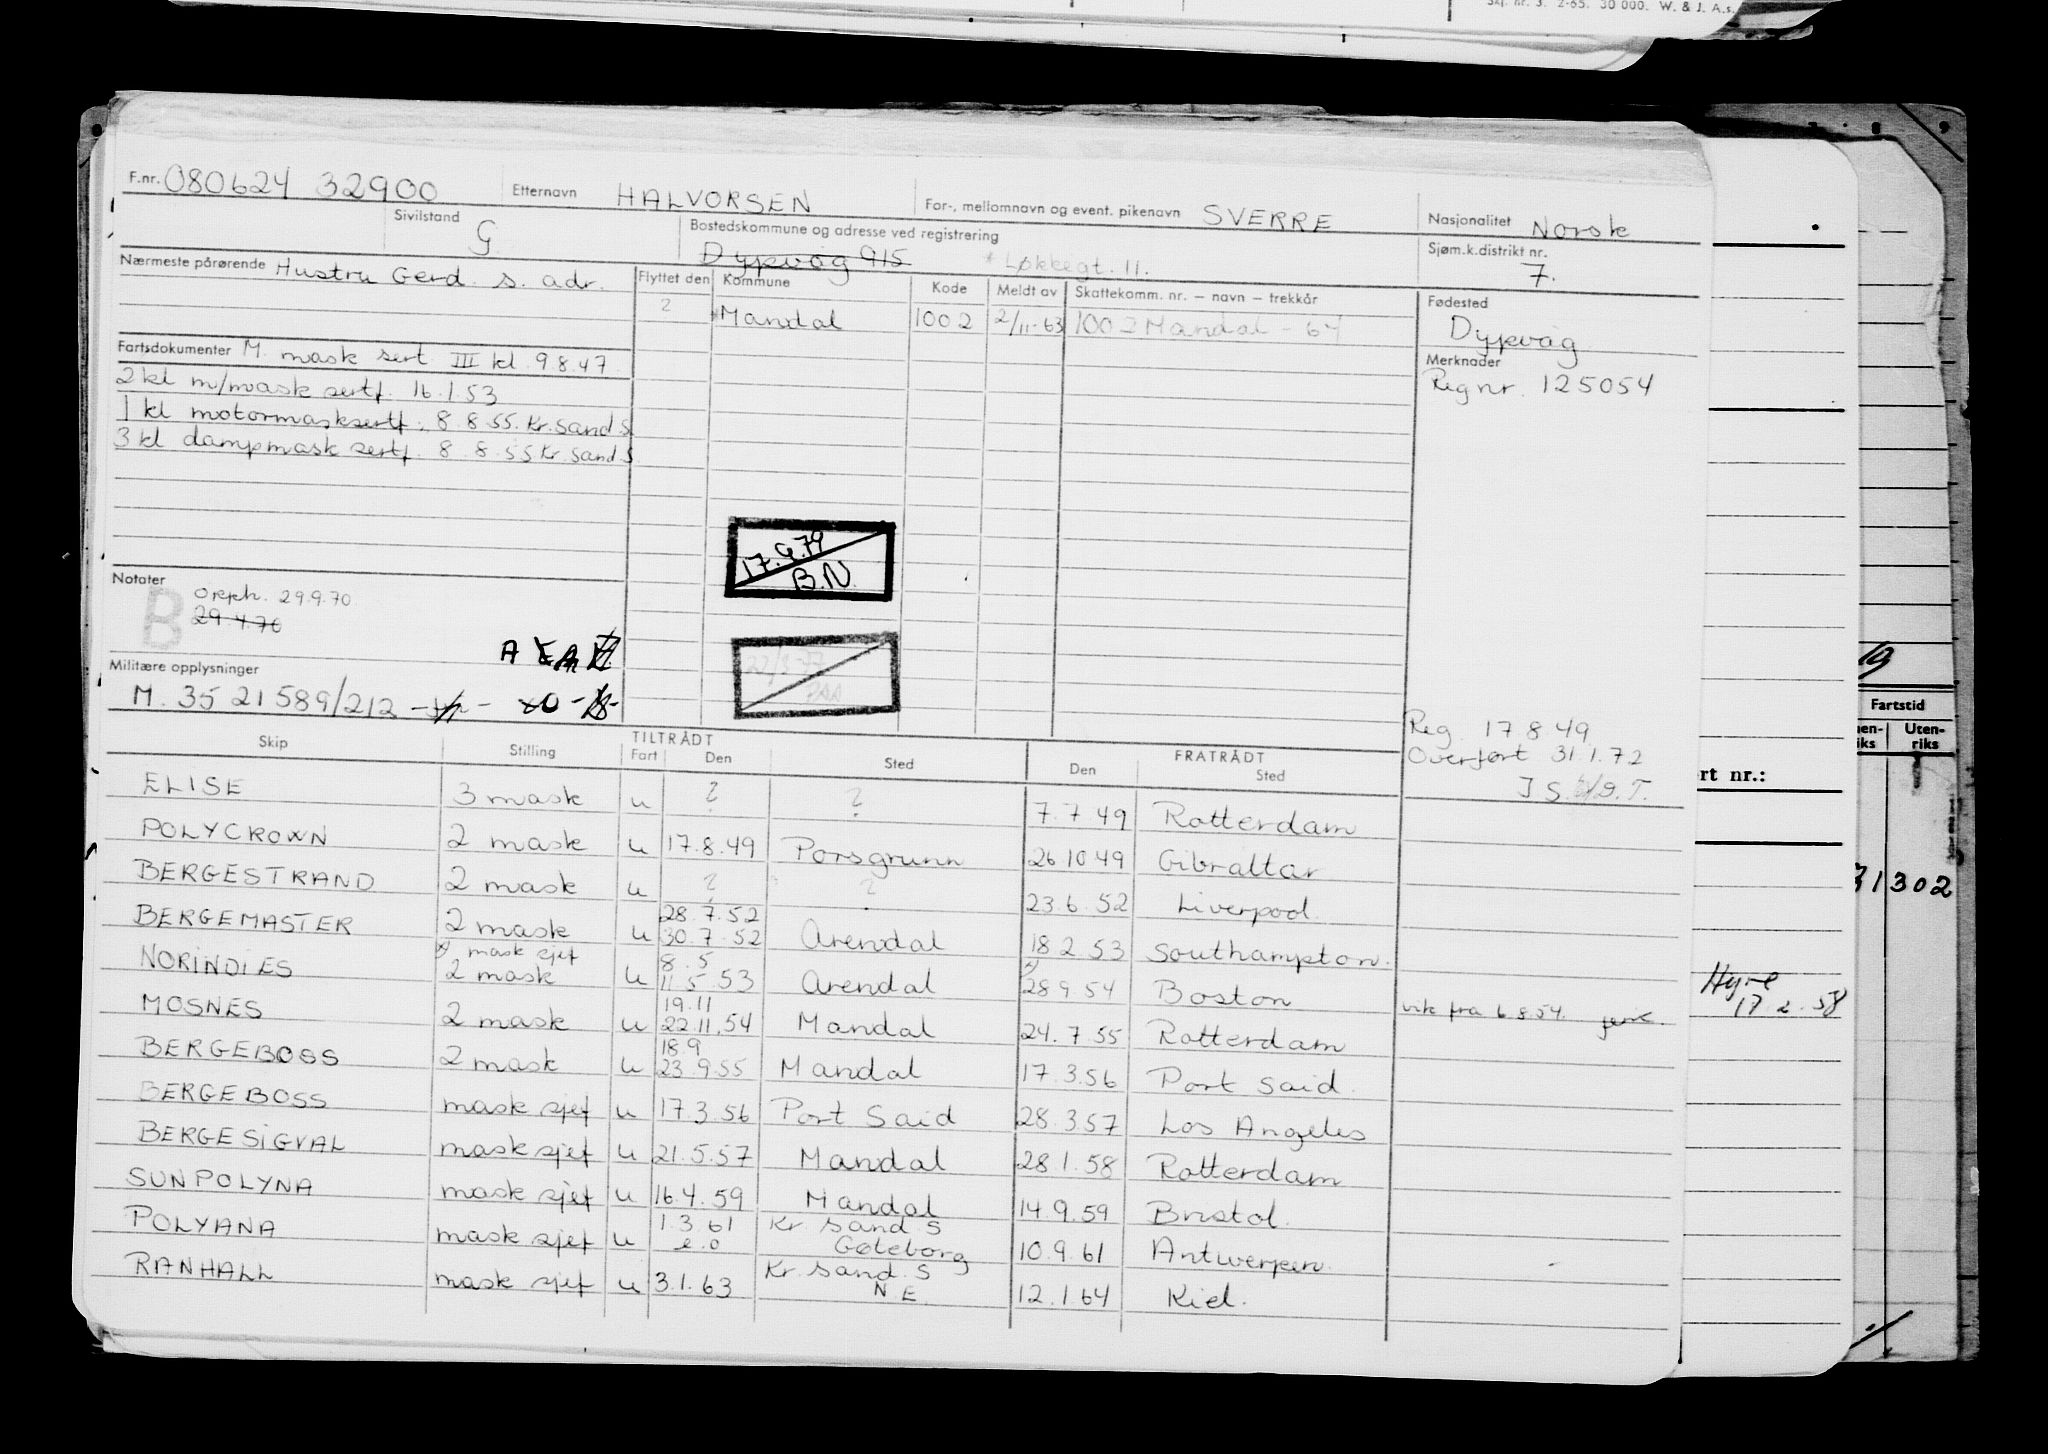 Skj. nr. 3. 2-65. 30 000. W. & J. A.s.
F.nr. 080624 32900 Etternavn HALVORSEN For-, mellomnavn og event. pikenavn SVERRE Nasjonalitet Norsk
Sivilstand G Bostedskommune og adresse ved registrering Dypvåg 915 * Løkkegt. 11. Sjøm.k.distrikt nr. 7.
Nærmeste pårørende Hustru Gerd. s. adr. Flyttet den Kommune Kode Meldt av Skattekomm. nr. – navn – trekkår Fødested
2 *Mandal 1002 2/11-63 1002 Mandal - 64 Dypvåg
Fartsdokumenter M. mask sert III kl. 9 8.47. Merknader
2 kl m/mask sertf. 16.1.53 Reg nr. 125054
1 kl motormasksertf. 8.8.55. Kr. sand S
3 kl dampmask sertf. 8.8.55 Kr. sand. S
17.9.79
B.N.
Notater Opph. 29.9.70
B 29.4.70
Militære opplysninger
M. 35 21 589/212
Reg. 17 8 49
Overført 31.1.72
Skip Stilling TILTRÅDT FRATRÅDT
Fart Den Sted Den Sted
ELISE 3 mask u ? ? 7.7 49 Rotterdam
POLYCROWN 2 mask u 17.8.49 Porsgrunn 26 10 49 Gibraltar
BERGESTRAND 2 mask u ? ? 23.6.52 Liverpool.
28.7.52
BERGEMASTER 2 mask u 30.7.52 Arendal 18 2 53 Southampton.
x) mask sjef 8.5 x)
NORINDIES 2 mask u 11.5 53 Arendal 28 9 54 Boston vik fra 6 8.54.
19.11
MOSNES 2 mask u 22.11.54 Mandal 24.7.55 Rotterdam
18.9
BERGEBOSS 2 mask u 23 9.55 Mandal 17.3.56 Port Said.
BERGEBOSS mask sjef u 17.3.56 Port Said 28.3 57 Los Angeles
BERGE SIGVAL mask sjef u 21.5.57 Mandal 28.1.58 Rotterdam
SUNPOLYNA mask sjef u 16.4.59 Mandal 14.9.59 Bristol.
1.3 61 Kr sand S
POLYANA mask sjef u e.o Gøteborg 10.9.61 Antwerpen.
Kr. sand. S
RANHALL mask sjef u 3.1.63 N E. 12.1 64 Kiel.
Hyre
17.2.58
19
Fartstid
Uten-
riks
rt nr.:
31302